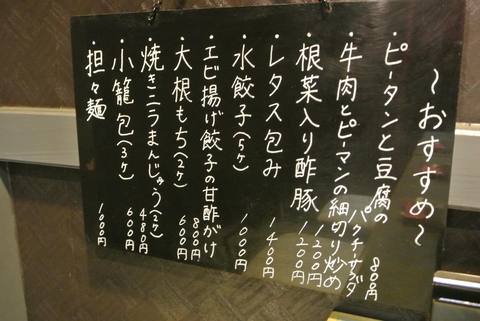 〜おすすめ〜
・ピータンと豆腐の
パクチーサラダ 800円
・牛肉とピーマンの細切り炒め 1200円
・根菜入り酢豚 1200円
・レタス包み 1400円
・水餃子(5ヶ) 1000円
・エビ揚げ餃子の甘酢がけ 800円
・大根もち(2ヶ) 600円
・焼きニラまんじゅう(2ヶ) 480円
・小籠包(3ヶ) 600円
・担々麺 1000円